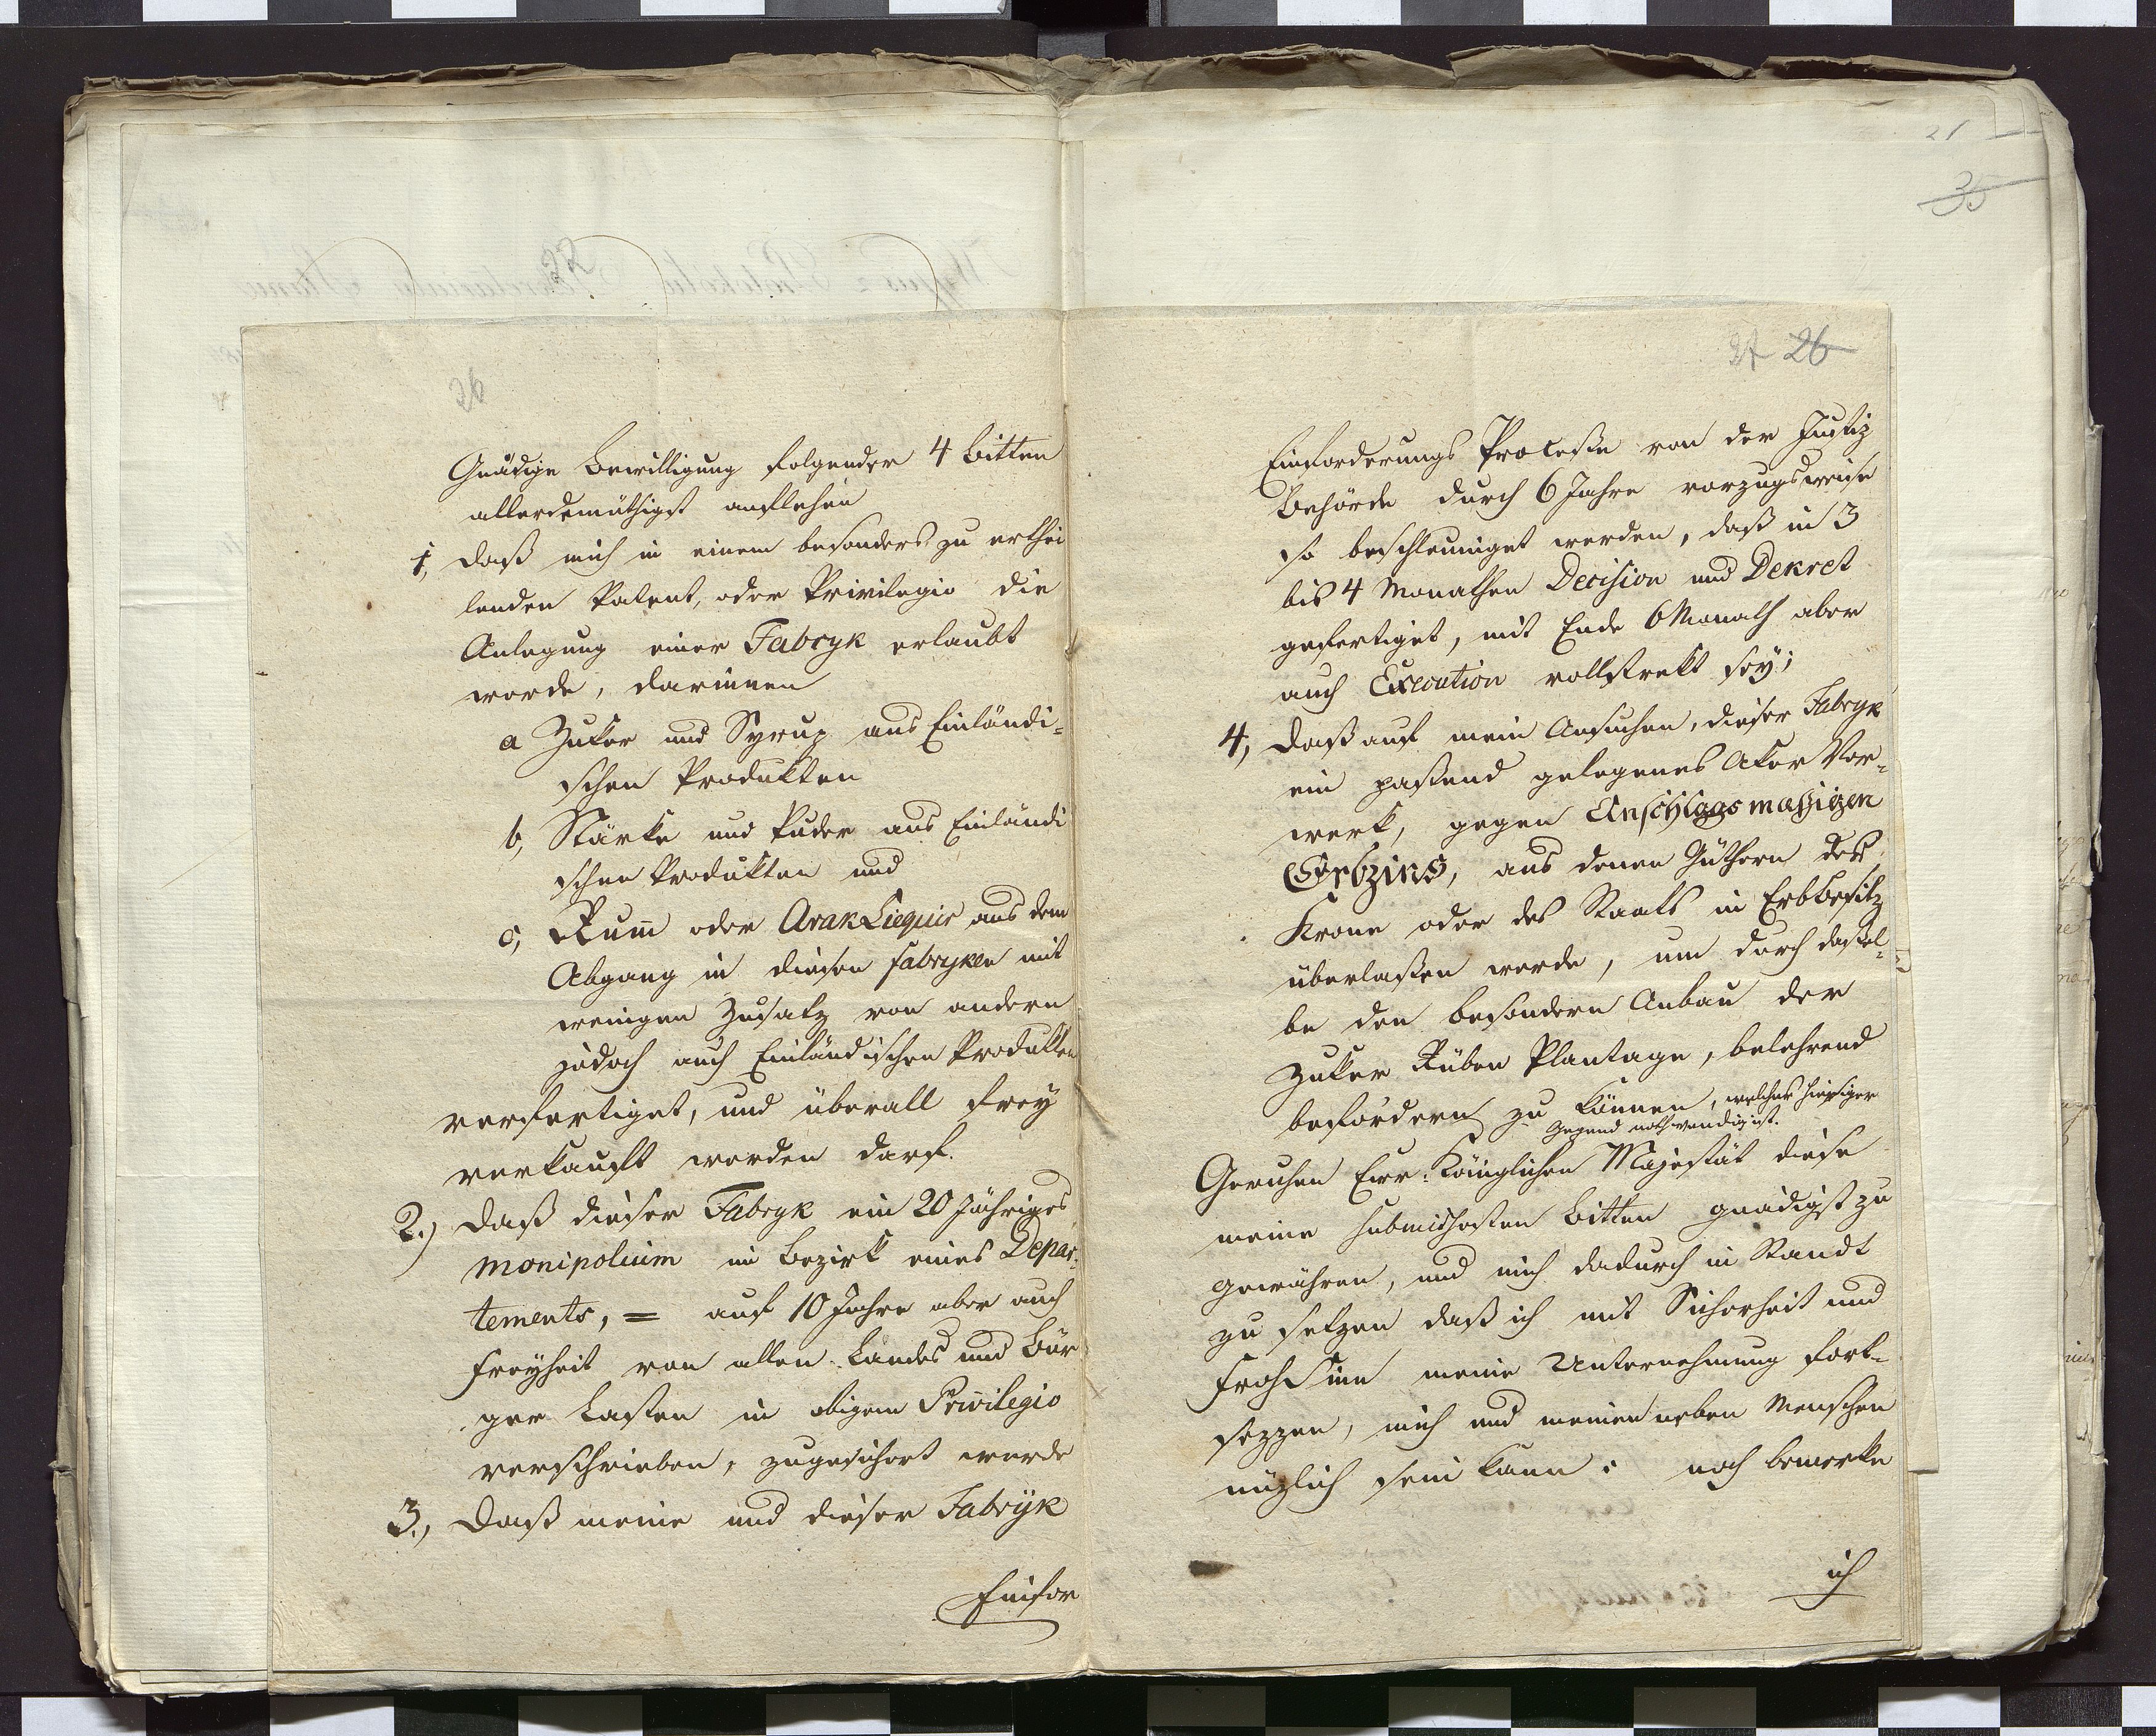 26
Gnädige Bewilligung folgender 4 Bitten
allerdemüthigst anflehen
1, daß mich in einem besonders zu erthei
lenden Patent, oder Privilegio die
Anlegung einer Fabryk erlaubt
werde, darinnen
a Zuker und Syrup aus Einländi=
schen Produkten
b, Stärke und Puder aus Einländi
schen Produkten und
c, Rum̄ oder Arak Liequir aus dem
Abgang in diesen fabryken mit
wenigen Zusatz von andern
jedoch auch Einländischen Produkten
verfertiget, und überall frey
verkauft werden darf.
2.) daß dieser Fabryk ein 20 Jähriges
monipolium im Bezirk eines Depar=
tements, = auf 10 Jahre aber auch
freyheit von allen Landes und Bür
ger Lasten in obigem Privilegio
verschrieben, zugesichert werde
3., daß meine und dieser Fabryk
Einfor
21
35
27 26
Einforderungs Proceße von der Justiz
Behörde durch 6 Jahre vorzugsweise
so beschleuniget werden, daß in 3
bis 4 Monathen Decision und Dekret
gefertiget, mit Ende 6 Monath aber
auch Execution vollstrekt sey;
4, daß auf mein Ansuchen, dieser Fabryk
ein paßend gelegenes Aker Vor=
werk, gegen Anschlagsmaßigen
Erbzins, aus denen Güthern der
Krone oder des Staats in Erbbesitz
überlaßen werde, um durch daßel=
be den besondern Anbau der
Zuker Rüben Plantage, belehrend
befördern zu können, welches hiesiger
Gegend nothwendig ist.
Geruhen Eur: Königlichen Majestät diese
meine submißesten Bitten gnädigst zu
gewähren, und mich dadurch in Standt
zu setzen daß ich mit Sicherheit und
Frohsinn meine Unternehmung fort=
sezzen, mich und meinen neben Menschen
nüzlich sein kann: noch bemerke
ich